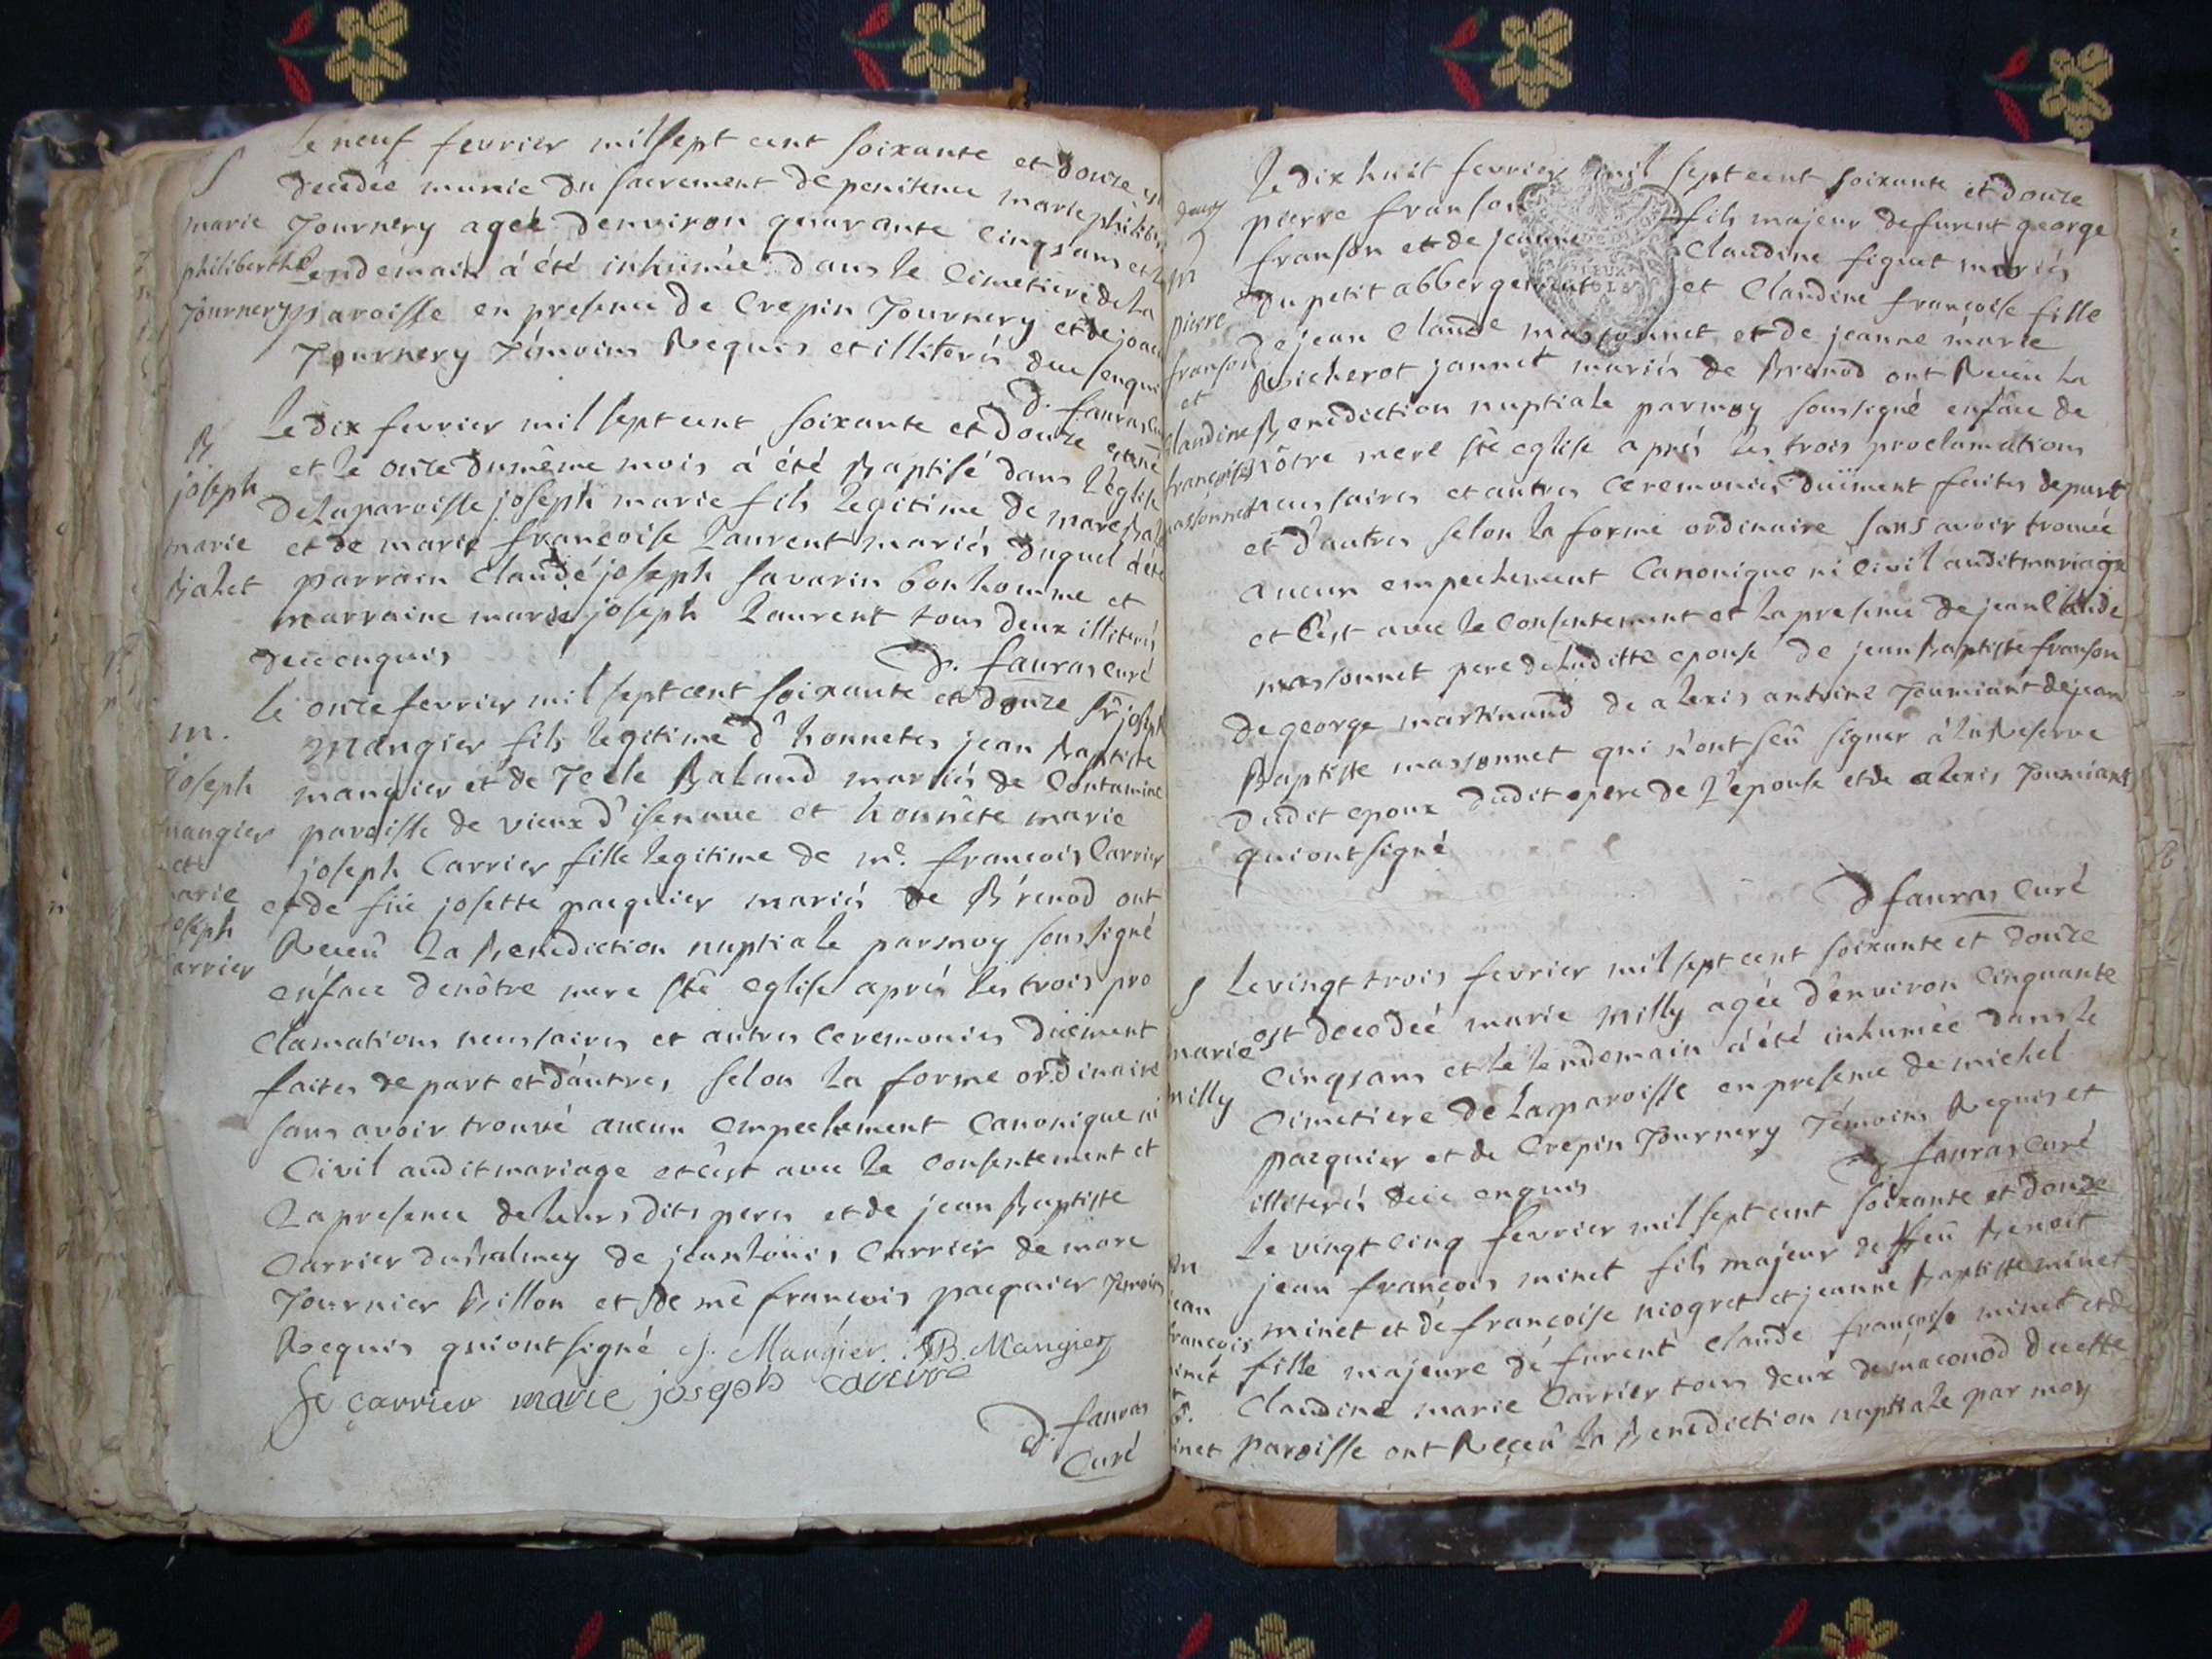 Le neuf fevrier mil sept cent soixante et douze est
decedée munie du sacrement de penitence marie philiber
Journery agée d'environ quarante cinqs ans et le
lendemain á été inhumée dans le Cimetiere de la
paroisse en presence de Crepin Journery et de joac
Journery Témoins Requis et illiterés de ce enqui
D. fauras Cu
S
marie
philiberthe
Journery
Le dix fevrier mil sept cent soixante et douze est né
et le onze du même mois á été Baptisé dans L'eglise
de la paroisse joseph marie fils legitime de marc Balet
et de marie francoise Laurent mariés duquel á été
parrain Claude joseph savarin bonhomme et
marraine marie joseph Laurent tous deux illiterés
de ce enquis
D. fauras curé
B
joseph
marie
Balet
Le onze fevrier mil sept cent soixante et douze Sr joseph
Mangier fils legitime d'honnetes jean Baptiste
mangier et de Tecle Baland mariés de Contamine
paroisse de vieux d'isenave et honnête marie
joseph Carrier fille legitime de me. francois Carrier
et de füe josette pacquier mariés de Brénod ont
Receu La Benediction nuptiale par moy soussigné
enface de nôtre mere Ste eglise aprés les trois pro
clamations necessaires et autres Ceremonies duëment
faites de part et d'autres, selon la forme ordinaire
sans avoir trouvé aucun Empechement Canonique ni
Civil audit mariage et c'est avec le consentement et
La presence de leurs dits peres et de jean Baptiste
Carrier du Balmey de jean Loüis Carrier de marc
Tournier Billon et de me francois pacquier Temoins
Requis qui ont signé J. Mangier JB. Mangier
fr carrier marie joseph cariere
D. fauras
Curé
m.
Joseph
mangier
et
marie
joseph
Carrier
Le dix huit fevrier mil sept cent soixante et douze
pierre franson fils majeur de furent george
franson et de jeanne Claudine figuet mariés
du petit abbergement et Claudine françoise fille
de jean Claude massonnet et de jeanne marie
Richerot jannet mariés de Brenod ont Receu La
Benediction nuptiale par moy soussigné enface de
nôtre mere ste eglise aprés les trois proclamations
necessaires et autres Ceremonies duëment faites de part
et d'autres selon la forme ordinaire sans avoir trouvée
aucun empechement Canonique ni Civil audit mariage
et C'est avec le Consentement et la presence de jean Claude
massonnet pere de laditte epouse de jean Baptiste franson
de george martinand de alexis antoine Tourniant de jean
Baptiste massonnet qui n'ont seû signer á la Reserve
dudit epoux dudit pere de L'epouse et de alexis Tourniant
qui ont signé
D fauras Curé
m
pierre
franson
et
Claudine
françoise
massonnet
Le vingt trois fevrier mil sept cent soixante et douze
est decedeé marie Milly agée d'environ Cinquante
Cinqs ans et le lendemain á été inhumée dans le
Cimetiere de la paroisse en presence de michel
pacquier et de Crepin Journery Témoins Requis et
illiterés de ce enquis
D. fauras Curé
S
marie
milly
Le vingt Cinq fevrier mil sept cent soixante et douze
jean françois minet fils majeur de feû Benoit
minet et de françoise niogret et jeanne Baptiste minet
fille majeure de furent Claude françois minet et de
Claudine marie Carrier tous deux de maconod de cette
paroisse ont Receû La Benediction nuptiale par moy
m
jean
francois
minet
et
minet